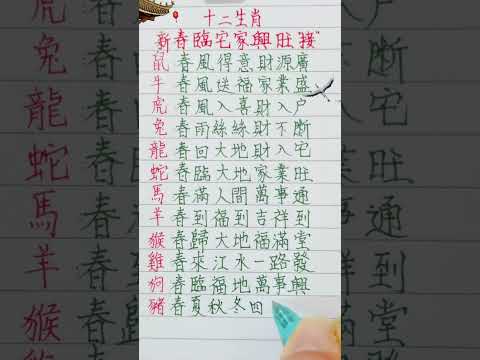 十二生肖
新春臨宅家興旺接"
鼠 春風得意財源廣
牛 春風送福家業盛
虎 春風入喜財入户
兔 春雨絲絲財不斷
龍 春回大地財入宅
蛇 春臨大地家業旺
馬 春滿人間萬事通
羊 春到福到吉祥到
猴 春歸大地福滿堂
雞 春來江水一路發
狗 春臨福地萬事興
豬 春夏秋冬